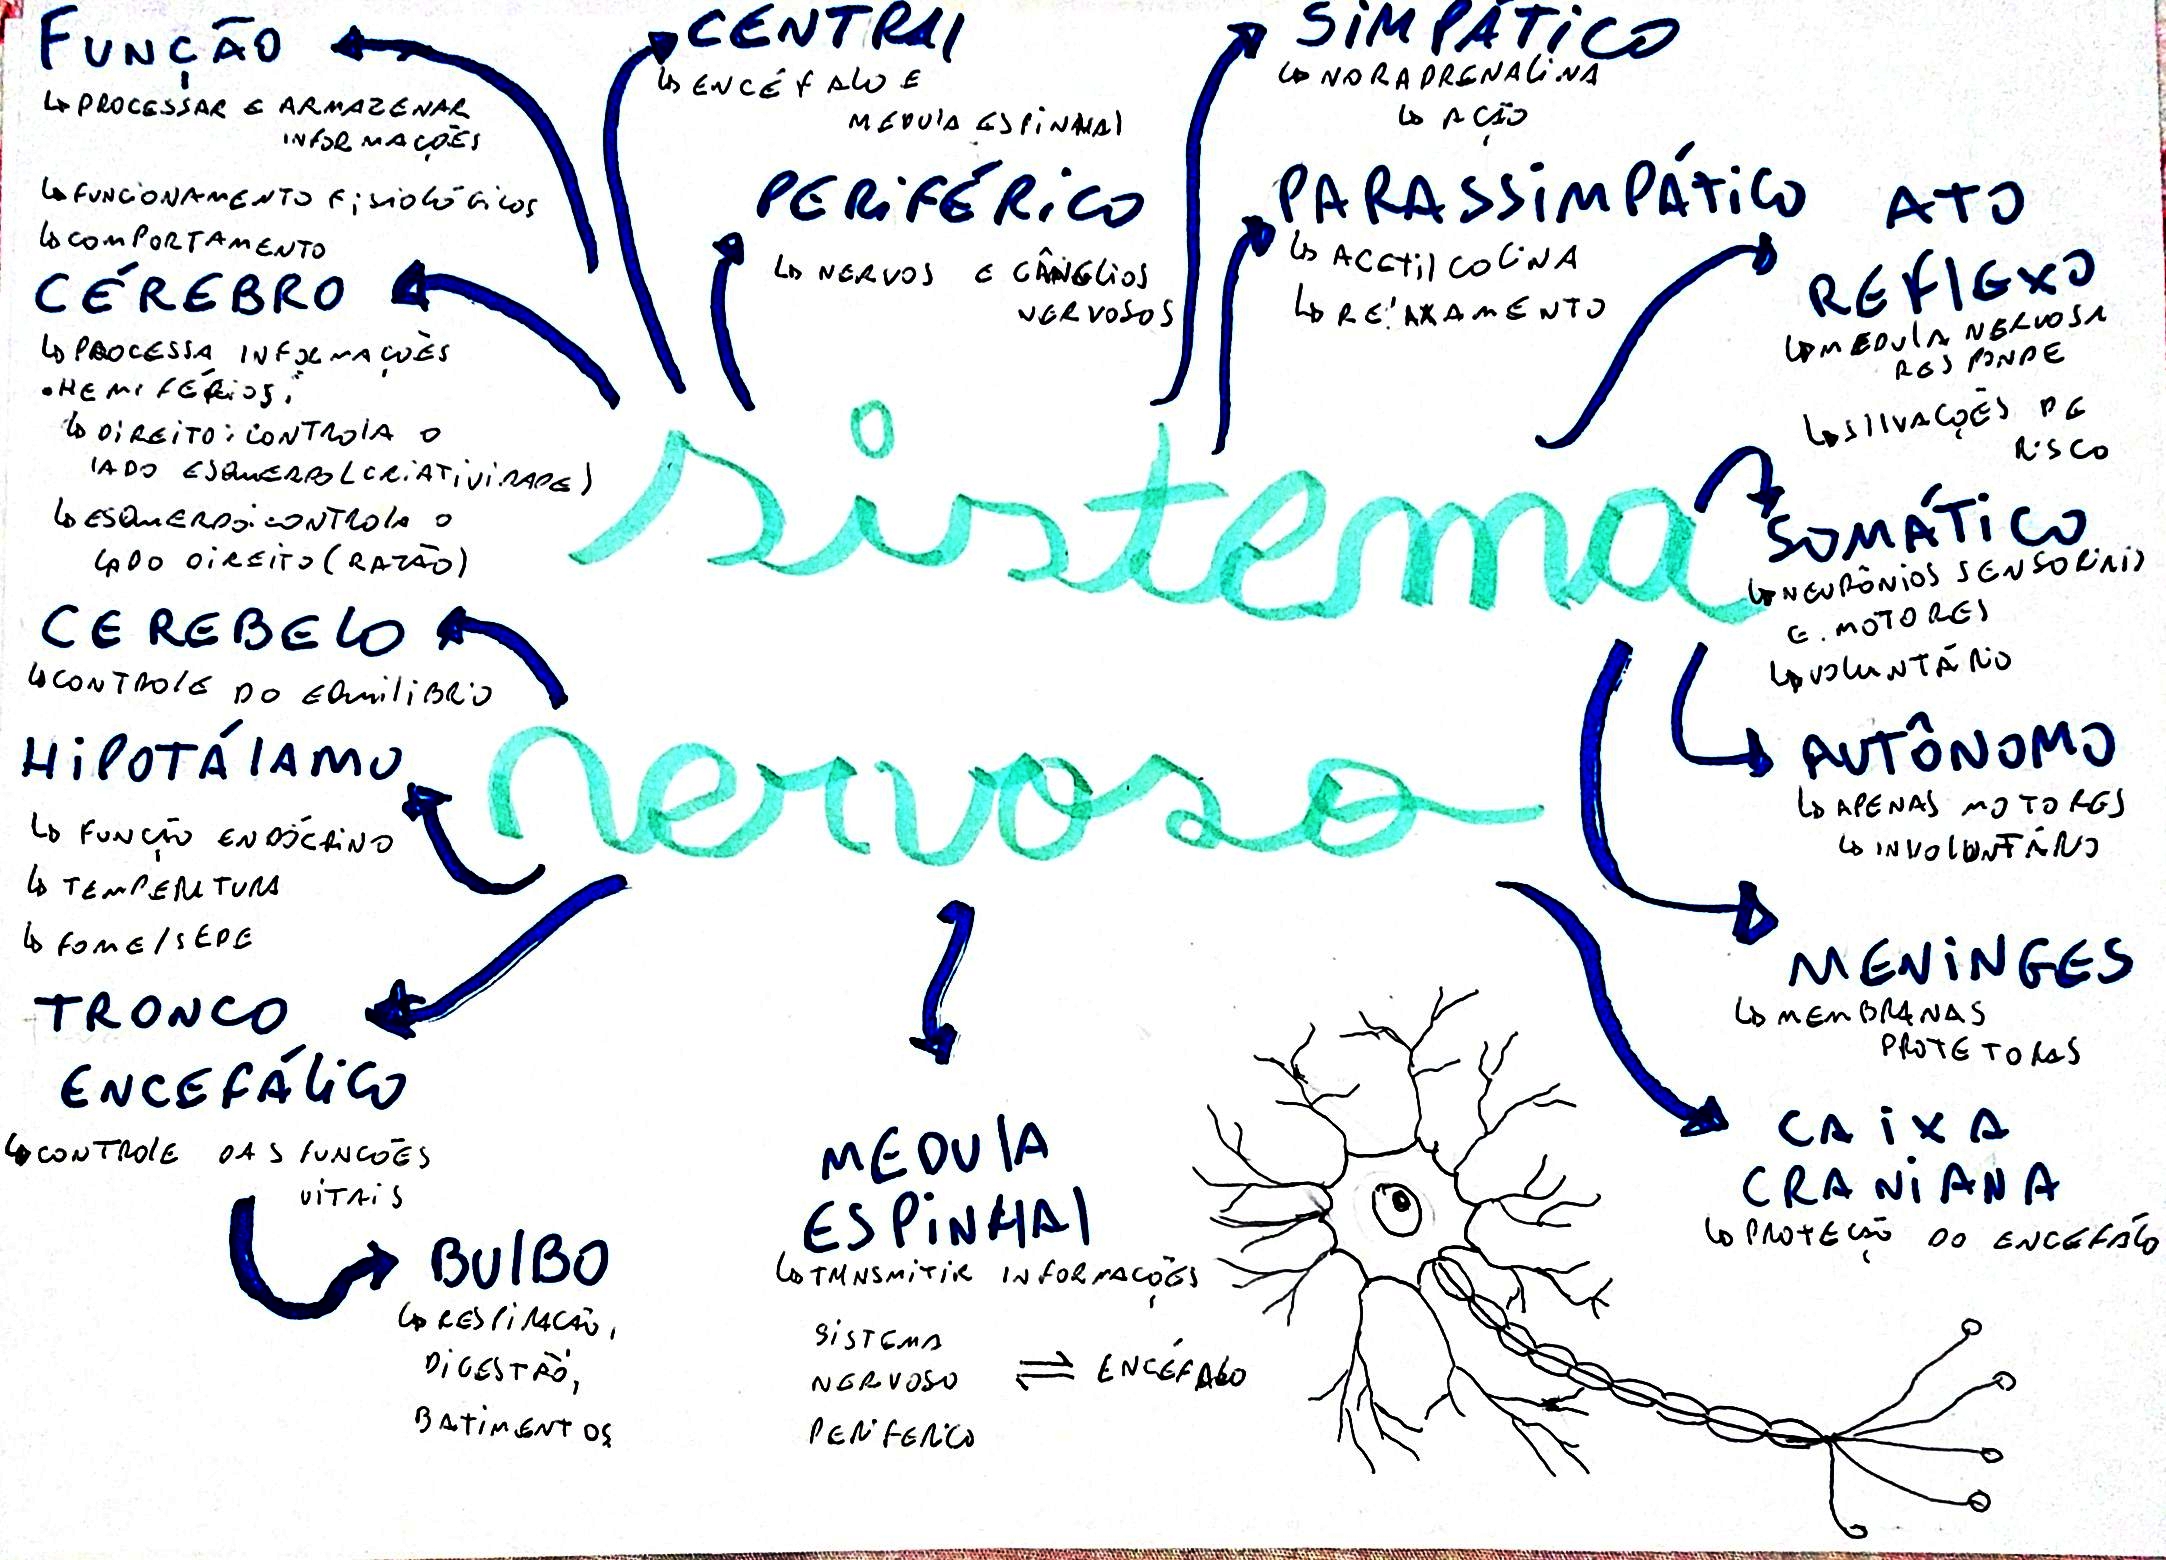 FUNÇÃO
↳ PROCESSAR E ARMAZENAR
INFORMAÇÕES
↳ FUNCIONAMENTO FISIOLÓGICOS
↳ COMPORTAMENTO
CÉREBRO
↳ PROCESSA INFORMAÇÕES
• HEMIFÉRIOS:
↳ DIREITO: CONTROLA O
LADO ESQUERDO (CRIATIVIDADE)
↳ ESQUERDO: CONTROLA O
LADO DIREITO (RAZÃO)
CEREBELO
↳ CONTROLE DO EQUILIBRIO
HIPOTÁLAMO
↳ FUNÇÃO ENDÓCRINO
↳ TEMPERATURA
↳ FOME/SEDE
TRONCO
ENCEFÁLICO
↳ CONTROLE DAS FUNCÕES
VITAIS
BULBO
↳ RESPIRACÃO,
DIGESTÃO,
BATIMENTOS
CENTRAL
↳ ENCÉFALO E
MEDULA ESPINHAL
PERIFÉRICO
↳ NERVOS E GÂNGLIOS
NERVOSOS
SIMPÁTICO
↳ NORADRENALINA
↳ AÇÃO
PARASSIMPÁTICO
↳ ACETILCOLINA
↳ RELAXAMENTO
sistema
nervoso
MEDULA
ESPINHAL
↳ TRANSMITIR INFORMAÇÕES
SISTEMA
NERVOSO ⇌ ENCÉFALO
PERIFERICO
ATO
REFLEXO
↳ MEDULA NERVOSA
RESPONDE
↳ SITUAÇÕES DE
RISCO
SOMÁTICO
↳ NEURÔNIOS SENSORIAIS
E MOTORES
↳ VOLUNTÁRIO
AUTÔNOMO
↳ APENAS MOTORES
↳ INVOLUNTÁRIO
MENINGES
↳ MEMBRANAS
PROTETORAS
CAIXA
CRANIANA
↳ PROTEÇÃO DO ENCEFÁLO